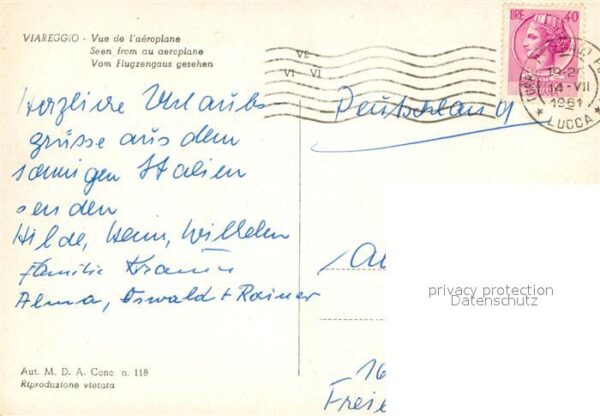 VIAREGGIO - Vue de l'aéroplane
Seen from au aeroplane
Vom Flugzengaus gesehen
VE
VI VI
LIRE 40
19-20
14-VII
1961
* LUCCA *
Deutschland
Herzliche Urlaubs
grüsse aus dem
sonnigen Italien
senden
Hilde, Henni, Wilhelm
Familie
Alma, Oswald + Rainer
An
privacy protection
Datenschutz
16
Aut. M. D. A. Conc. n. 118
Riproduzione vietata